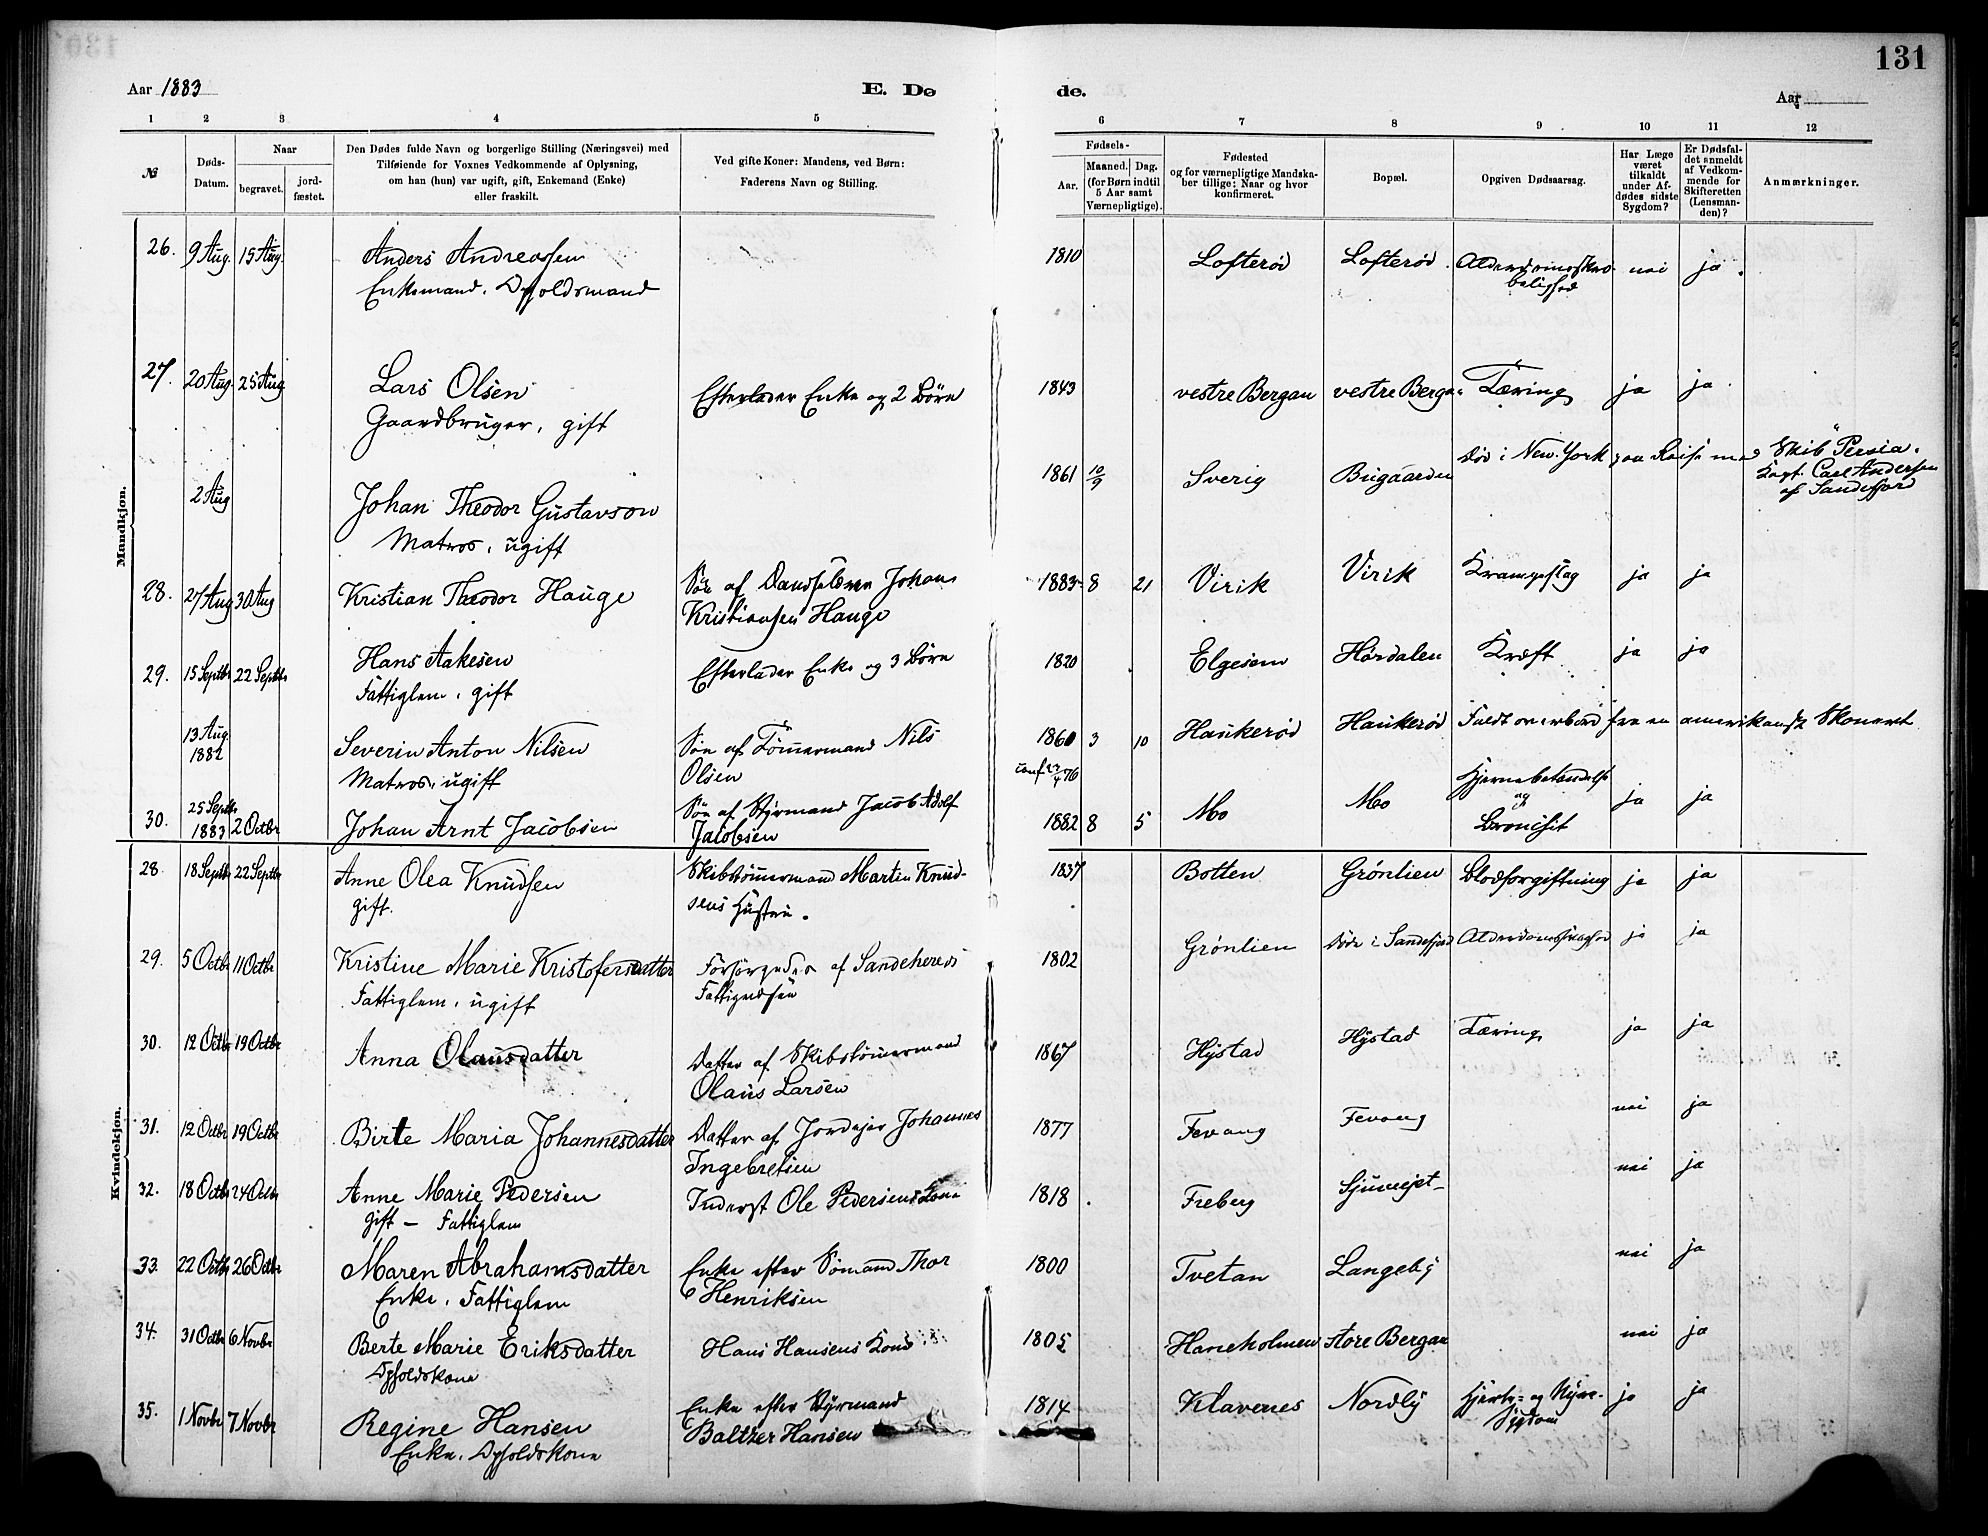 131
Aar 1883
E. Dø
de.
Aar
1 2 3 4 5
6 7 8 9 10 11 12
№
Døds-
Datum.
Naar
begravet.
jord-
fæstet.
Den Dødes fulde Navn og borgerlige Stilling (Næringsvei) med
Tilføiende for Voxnes Vedkommende af Oplysning,
om han (hun) var ugift, gift, Enkemand (Enke)
eller fraskilt.
Ved gifte Koner: Mandens, ved Børn:
Faderens Navn og Stilling.
Fødsels-
Aar.
Maaned.
Dag.
(for Børn indtil
5 Aar samt
Værnepligtige).
Fødested
og for værnepligtige Mandska-
ber tillige: Naar og hvor
konfirmeret.
Bopæl.
Opgiven Dødsaarsag.
Har Læge
været
tilkaldt
under Af-
dødes sidste
Sygdom?
Er Dødsfal-
det anmeldt
af Vedkom-
mende for
Skifteretten
(Lensman-
den)?
Anmærkninger.
Mandkjøn.
26. 9 Aug. 15 Aug. Anders Andreassen 1810 Lofterød Lofterød. Alderdomssskrø- nei ja.
Enkemand. Dgsoldsmand
belighed
27. 20 Aug. 25 Aug Lars Olsen Efterlader Enke og 2 Børn 1843 vestre Bergan vestre Bergan Tæring ja ja.
Gaardbruger, gift
2 Aug Johan Theodor Gustavson 1861 10/9 Sverig Bugaarden Død i New. York paa Reise med Skib "Persia.
Matros, ugift
Kapt. Carl Andersen
af Sandefjord
28. 27 Aug 30 Aug Kristian Theodor Hauge Søn af Johan 1883 8 21 Virik Virik Krampeslag ja ja
Kristiansen Hauge
29. 15 Septbr 22 Septbr Hans Aakesen Efterlader Enke og 3 Børn 1820 Elgesem Hørdalen Kræft ja ja
Fattiglem, gift
13 Aug.
1882 Severin Anton Nilsen Søn af Tømmermand Nils 1860 3 10 Haukerød Haukerød Faldt overbord fra en amerikansk Skonnert
Matros, ugift Olsen conf. 23/4 76
25 Septbr
30. 1883 2 Octbr Johan Arnt Jacobsen Søn af Styrmand Jacob Adolf 1882 8 5 Mo Mo Hjernebetændelse ja ja
Jacobsen
og
Bronchit
Kvindekjøn.
28. 18 Septbr 22 Septbr Anne Olea Knudsen Skibstømmermand Martin Knud- 1837 Botten Grønlien Blodforgiftning ja ja
gift. sens Hustru.
29. 5 Octbr 11 Octbr Kristine Marie Kristofersdatter Forsørgedes af Sandehereds 1802 Grønlien Døde i Sandefjord Alderdomssvaghed ja ja
Fattiglem, ugift Fattigvæsen
30. 12 Octbr 19 Octbr Anna Olausdatter Datter af Skibstømmermand 1867 Hystad Hystad Tæring ja ja
Olaus Larsen
31. 12 Octbr 19 Octbr Birte Maria Johannesdatter Datter af Jordejer Johannes 1877 Fevang Fevang nei ja
Ingebretsen
32. 18 Octbr 24 Octbr Anne Marie Pedersen Inderst Ole Pedersens Kone 1818 Freberg nei ja
gift - Fattiglem
33. 22 Octbr 26 Octbr Maren Abrahamsdatter Enke efter Sømand Thor 1800 Tvetan Langeby nei ja
Enke, Fattiglem Henriksen
34. 31 Octbr 6 Novbr Berte Marie Eriksdatter Hans Hansens Kone 1805 Haneholmen store Bergan nei ja
35. 1 Novbr 7 Novbr Regine Hansen Enke efter Styrmand 1814 Klavenes Nordby Hjerte- og Nyre- ja ja
Enke. Baltzer Hansen Sygdom